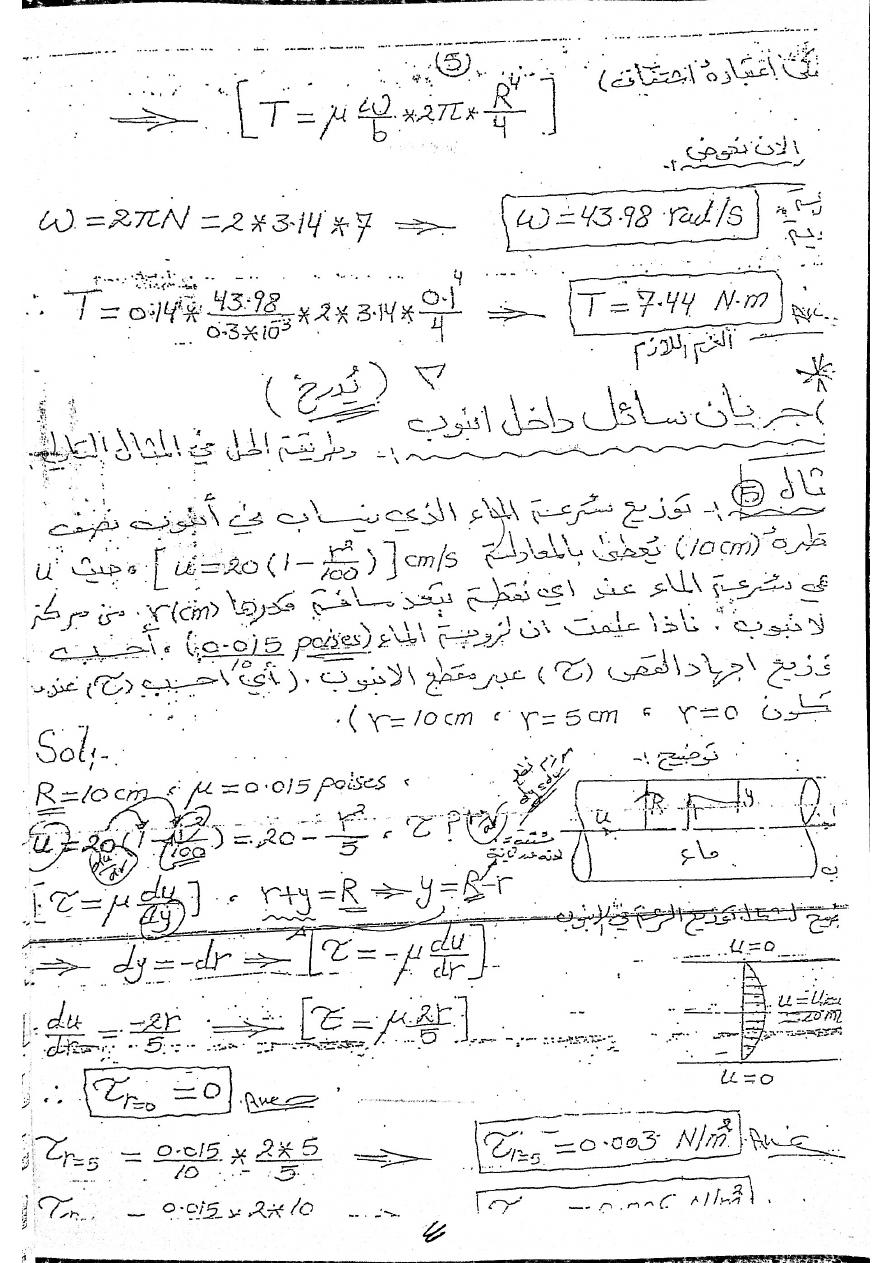 (5)
⟹ [T = μ ω/b * 2π * R⁴/4]
الان نعوض :-
ω = 2πN = 2 * 3.14 * 7 ⟹ ω = 43.98 rad/s
∴ T = 0.14 * 43.98/0.3*10⁻³ * 2 * 3.14 * 0.1⁴/4 ⟹ T = 7.44 N.m
العزم اللازم
*
جريان سائل داخل انبوب :- وطريقة الحل في المثال التالي
مثال (5) :- توزيع سرعة الماء الذي ينساب في أنبوب نصف
قطره (10cm) يُعطى بالمعادلة [u = 20(1 - r²/100)] cm/s ، حيث u
هي سرعة الماء عند اي نقطة تبعد مسافة قدرها r(cm) من مركز
الانبوب . فاذا علمت ان لزوجة الماء (0.015 poises) ، أحسب
توزيع اجهاد القص (τ) عبر مقطع الانبوب . (أي احسب (τ) عندما
تكون r=0 ، r=5cm ، r=10cm).
Sol:-
توضيح :-
R = 10cm ، μ = 0.015 poises ،
u = 20(1 - r²/100) = 20 - r²/5 ، τ ?
du/dr
R
y
u
r
ماء
[τ = μ du/dy] ، r+y = R ⟹ y = R-r
⟹ dy = -dr ⟹ [τ = -μ du/dr]
u=0
du/dr = -2r/5 ⟹ [τ = μ 2r/5]
u=0
∴ τr=0 = 0 Ans
τr=5 = 0.015/10 * 2*5/5 ⟹ τr=5 = 0.003 N/m² Ans
0.015 * 2*10